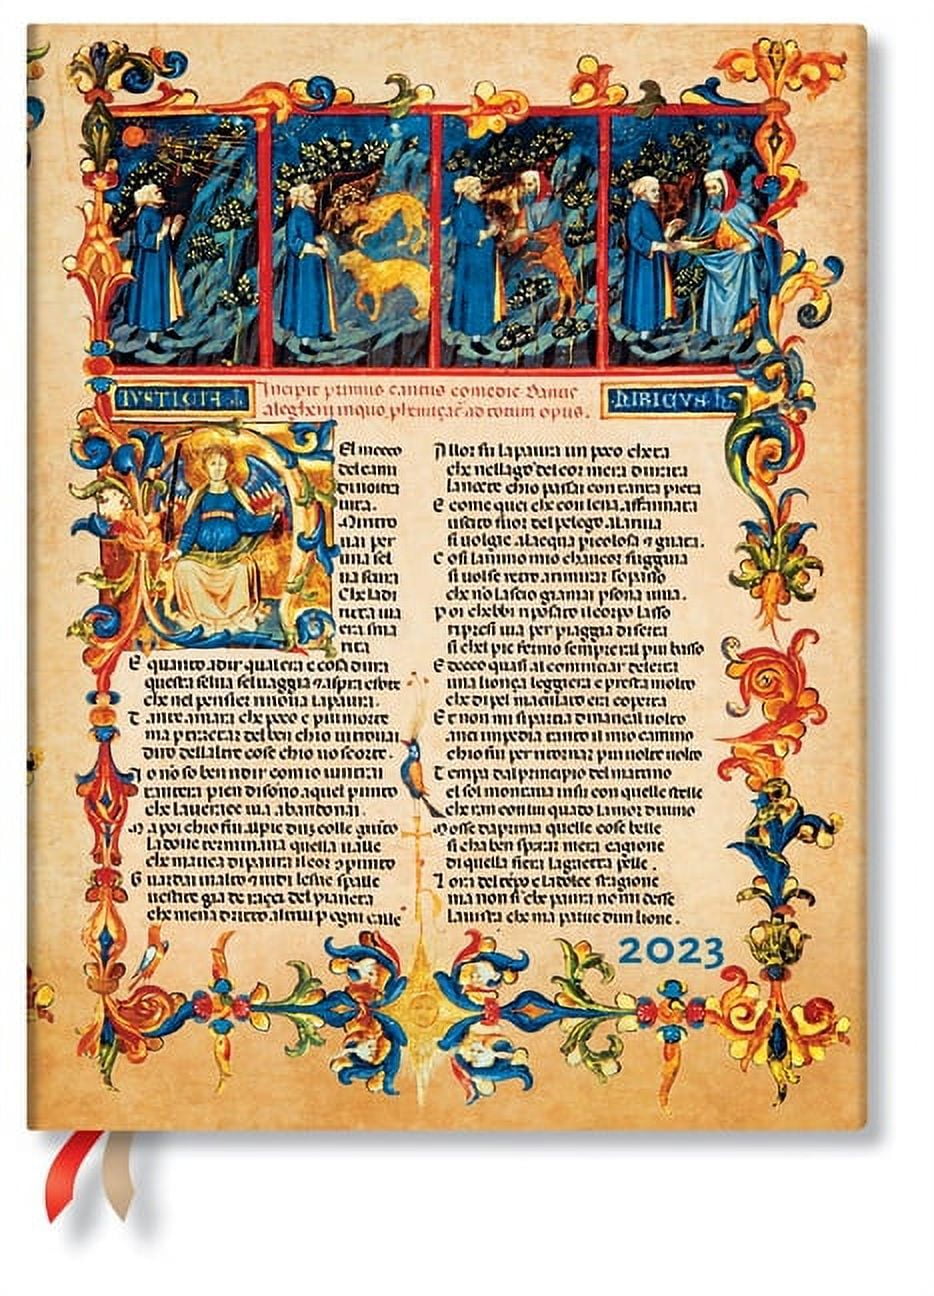 IVSTICIA
Incipit primus cantus comedie Dantis
alegherii in quo
ad totum opus.
El mecco
del cami
di nostra
uita.
Mi ritro
uai per
una sel
ua scura
Che la di
ritta uia
era sma
rita
E quanto a dir qual era e cosa dura
questa selua seluaggia 7 aspra e forte
che nel pensier rinoua la paura.
Tant e amara che poco e piu morte
ma per trectar del ben chio ui trouai
diro dellaltre cose chio uo scorte.
Io no so ben ridir comio uintrai
tantera pien di sono a quel punto
che la uerace uia abandonai.
Ma poi chio fui al pie dun colle giunto
la doue terminaua quella ualle
che mauea di paura il cor punto
Guardai in alto 7 uidi le sue spalle
uestite gia de raggi del pianeta
che mena dritto altrui p ogni calle
Allor fu la paura un poco cheta
che nellago del cor mera durata
la nocte chio passai con tanta pieta
E come quei che con lena affannata
uscito fuor del pelago a la riua
si uolge a lacqua picolosa 7 guata.
Cosi lanimo mio chancor fuggiua
si uolse retro a rimirar lo passo
che no lascio gramai psona uiua.
Poi chebbi riposato il corpo lasso
ripresi uia per piaggia diserta
si chel pie fermo sempre era il piu basso
Et ecco quasi al cominciar de lerta
una lionça leggiera e presta molto
che di pel maculato era coperta
Et non mi si partia dinançi al uolto
anci impedia tanto il mio camino
chio fui per ritornar piu uolte uolto
Tempo dal principio del matino
el sol montaua insu con quelle stelle
cheran con lui quado lamor diuino
Mosse daprima quelle cose belle
si cha ben sperar mera cagione
di quella fiera la gaetta pelle.
Lora del tépo e la dolce stagione
ma non si che paura no mi desse
la uista che ma parue dun lione.
2023